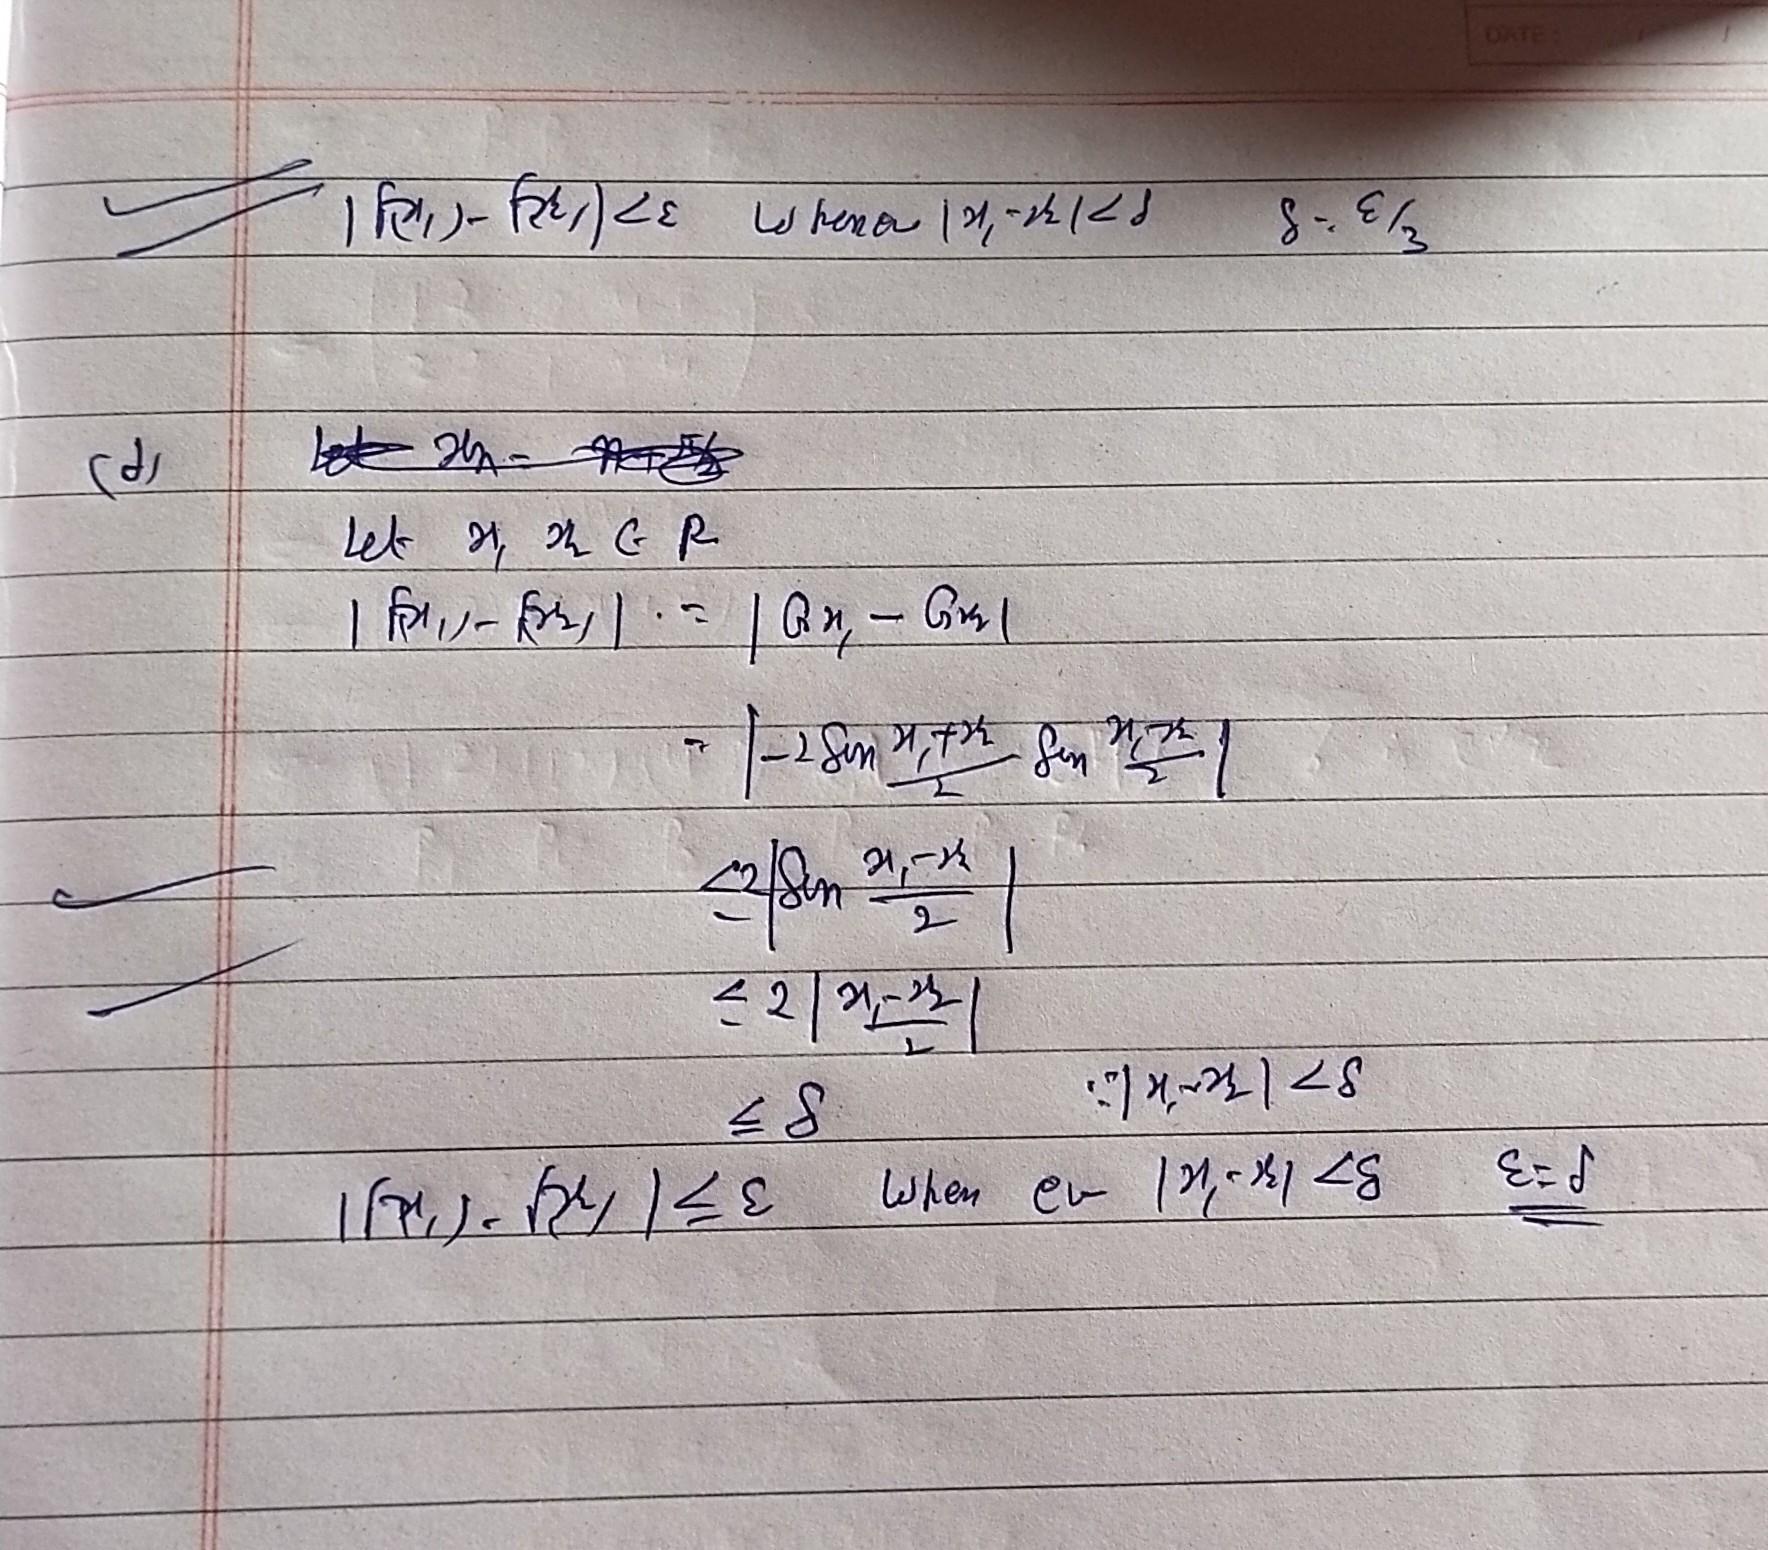 DATE :
|f(x₁) - f(x₂)| < ε whenever |x₁ - x₂| < δ δ = ε/3
(d)
Let x₁, x₂ ∈ R
|f(x₁) - f(x₂)| = |Cos x₁ - Cos x₂|
= |-2 Sin (x₁+x₂)/2 Sin (x₁-x₂)/2|
≤ 2|Sin (x₁-x₂)/2|
≤ 2|(x₁-x₂)/2|
≤ δ ∵ |x₁-x₂| < δ
|f(x₁) - f(x₂)| ≤ ε when ev |x₁-x₂| < δ ε = δ